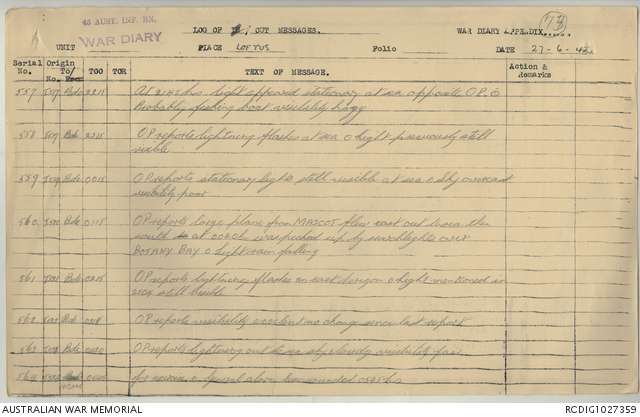 45 AUST. INF. BN.
WAR DIARY
UNIT
LOG OF OUT MESSAGES.
PLACE LOFTUS
Folio
WAR DIARY APPENDIX
DATE 27-6-42
Serial No. Origin To/ No. TGO TOR TEXT OF MESSAGE. Action & Remarks
557 Bde 2211 At hrs. light appeared stationary at sea opposite O.P. o
Probably fishing boat visibility hazy
558 Bde 2215 OP reports lightning flashes at sea o light previously still
visible
559 Bde 0015 OP reports stationary lights still visible at sea o sky overcast
visibility poor
560 Bde 0115 OP reports large plane from MASCOT flew east out then
south at was picked up by searchlights over
BOTANY BAY o light rain falling
561 Bde 0215 OP reports lightning flashes on east horizon o light mentioned in
still visible
562 Bde OP reports visibility excellent no change since last report
563 Bde OP reports lightning out to sea sky cloudy visibility fair
564 alarm sounded hrs
AUSTRALIAN WAR MEMORIAL
RCDIG1027359